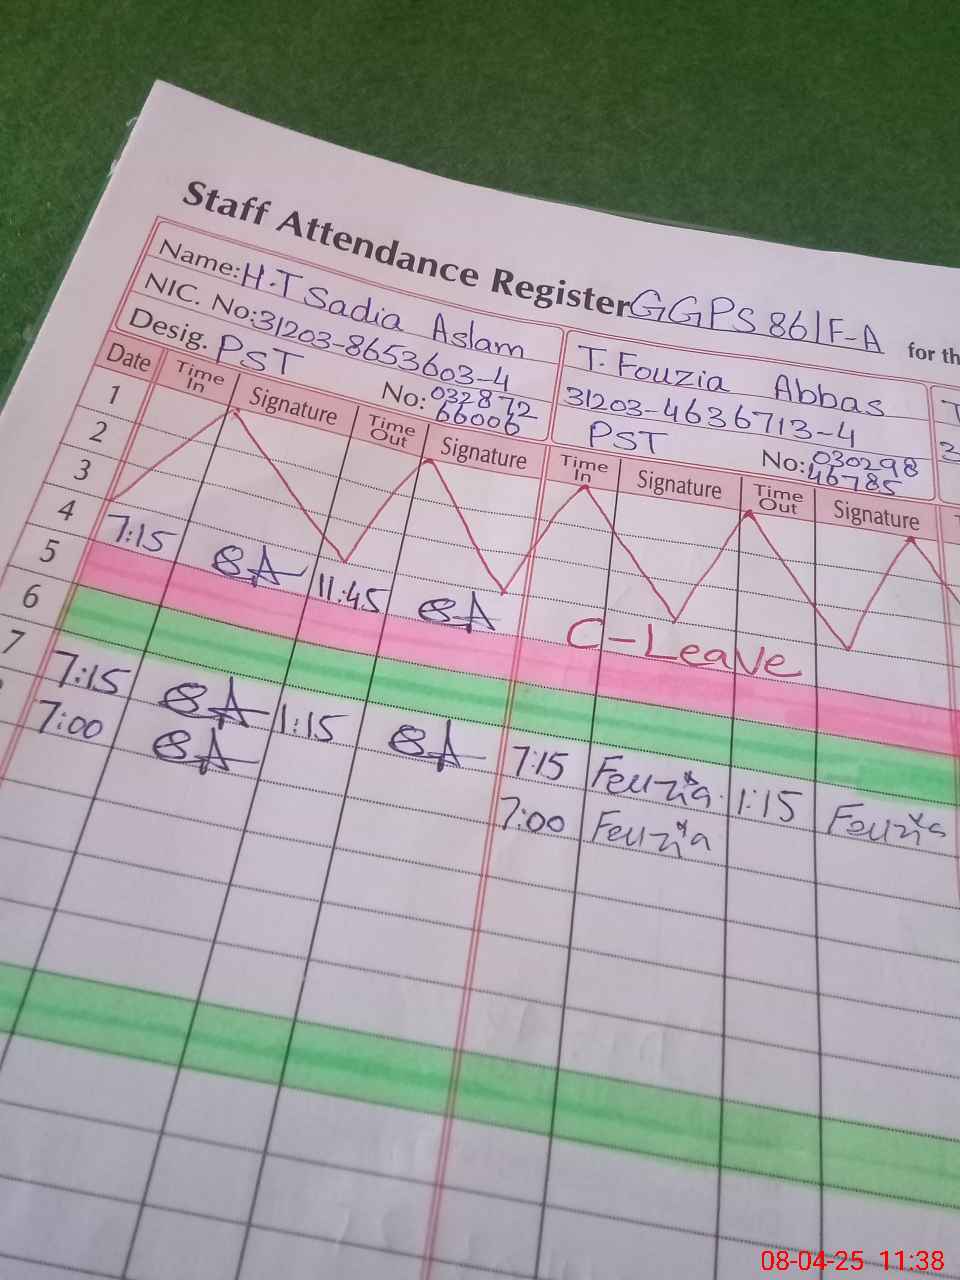 Staff Attendance Register GGPS 86/F-A for th
Name: H.T Sadia Aslam
NIC. No: 31203-8653603-4
Desig. PST No: 032872 66006
T. Fouzia Abbas
31203-4636713-4
PST No: 030298 46785
Date Time In Signature Time Out Signature Time In Signature Time Out Signature
1
2
3
4 7:15 SA 11:45 SA C-Leave
5
6
7 7:15 SA 1:15 SA 7:15 Feuzia 1:15 Feuzia
7:00 SA 7:00 Feuzia
08-04-25 11:38